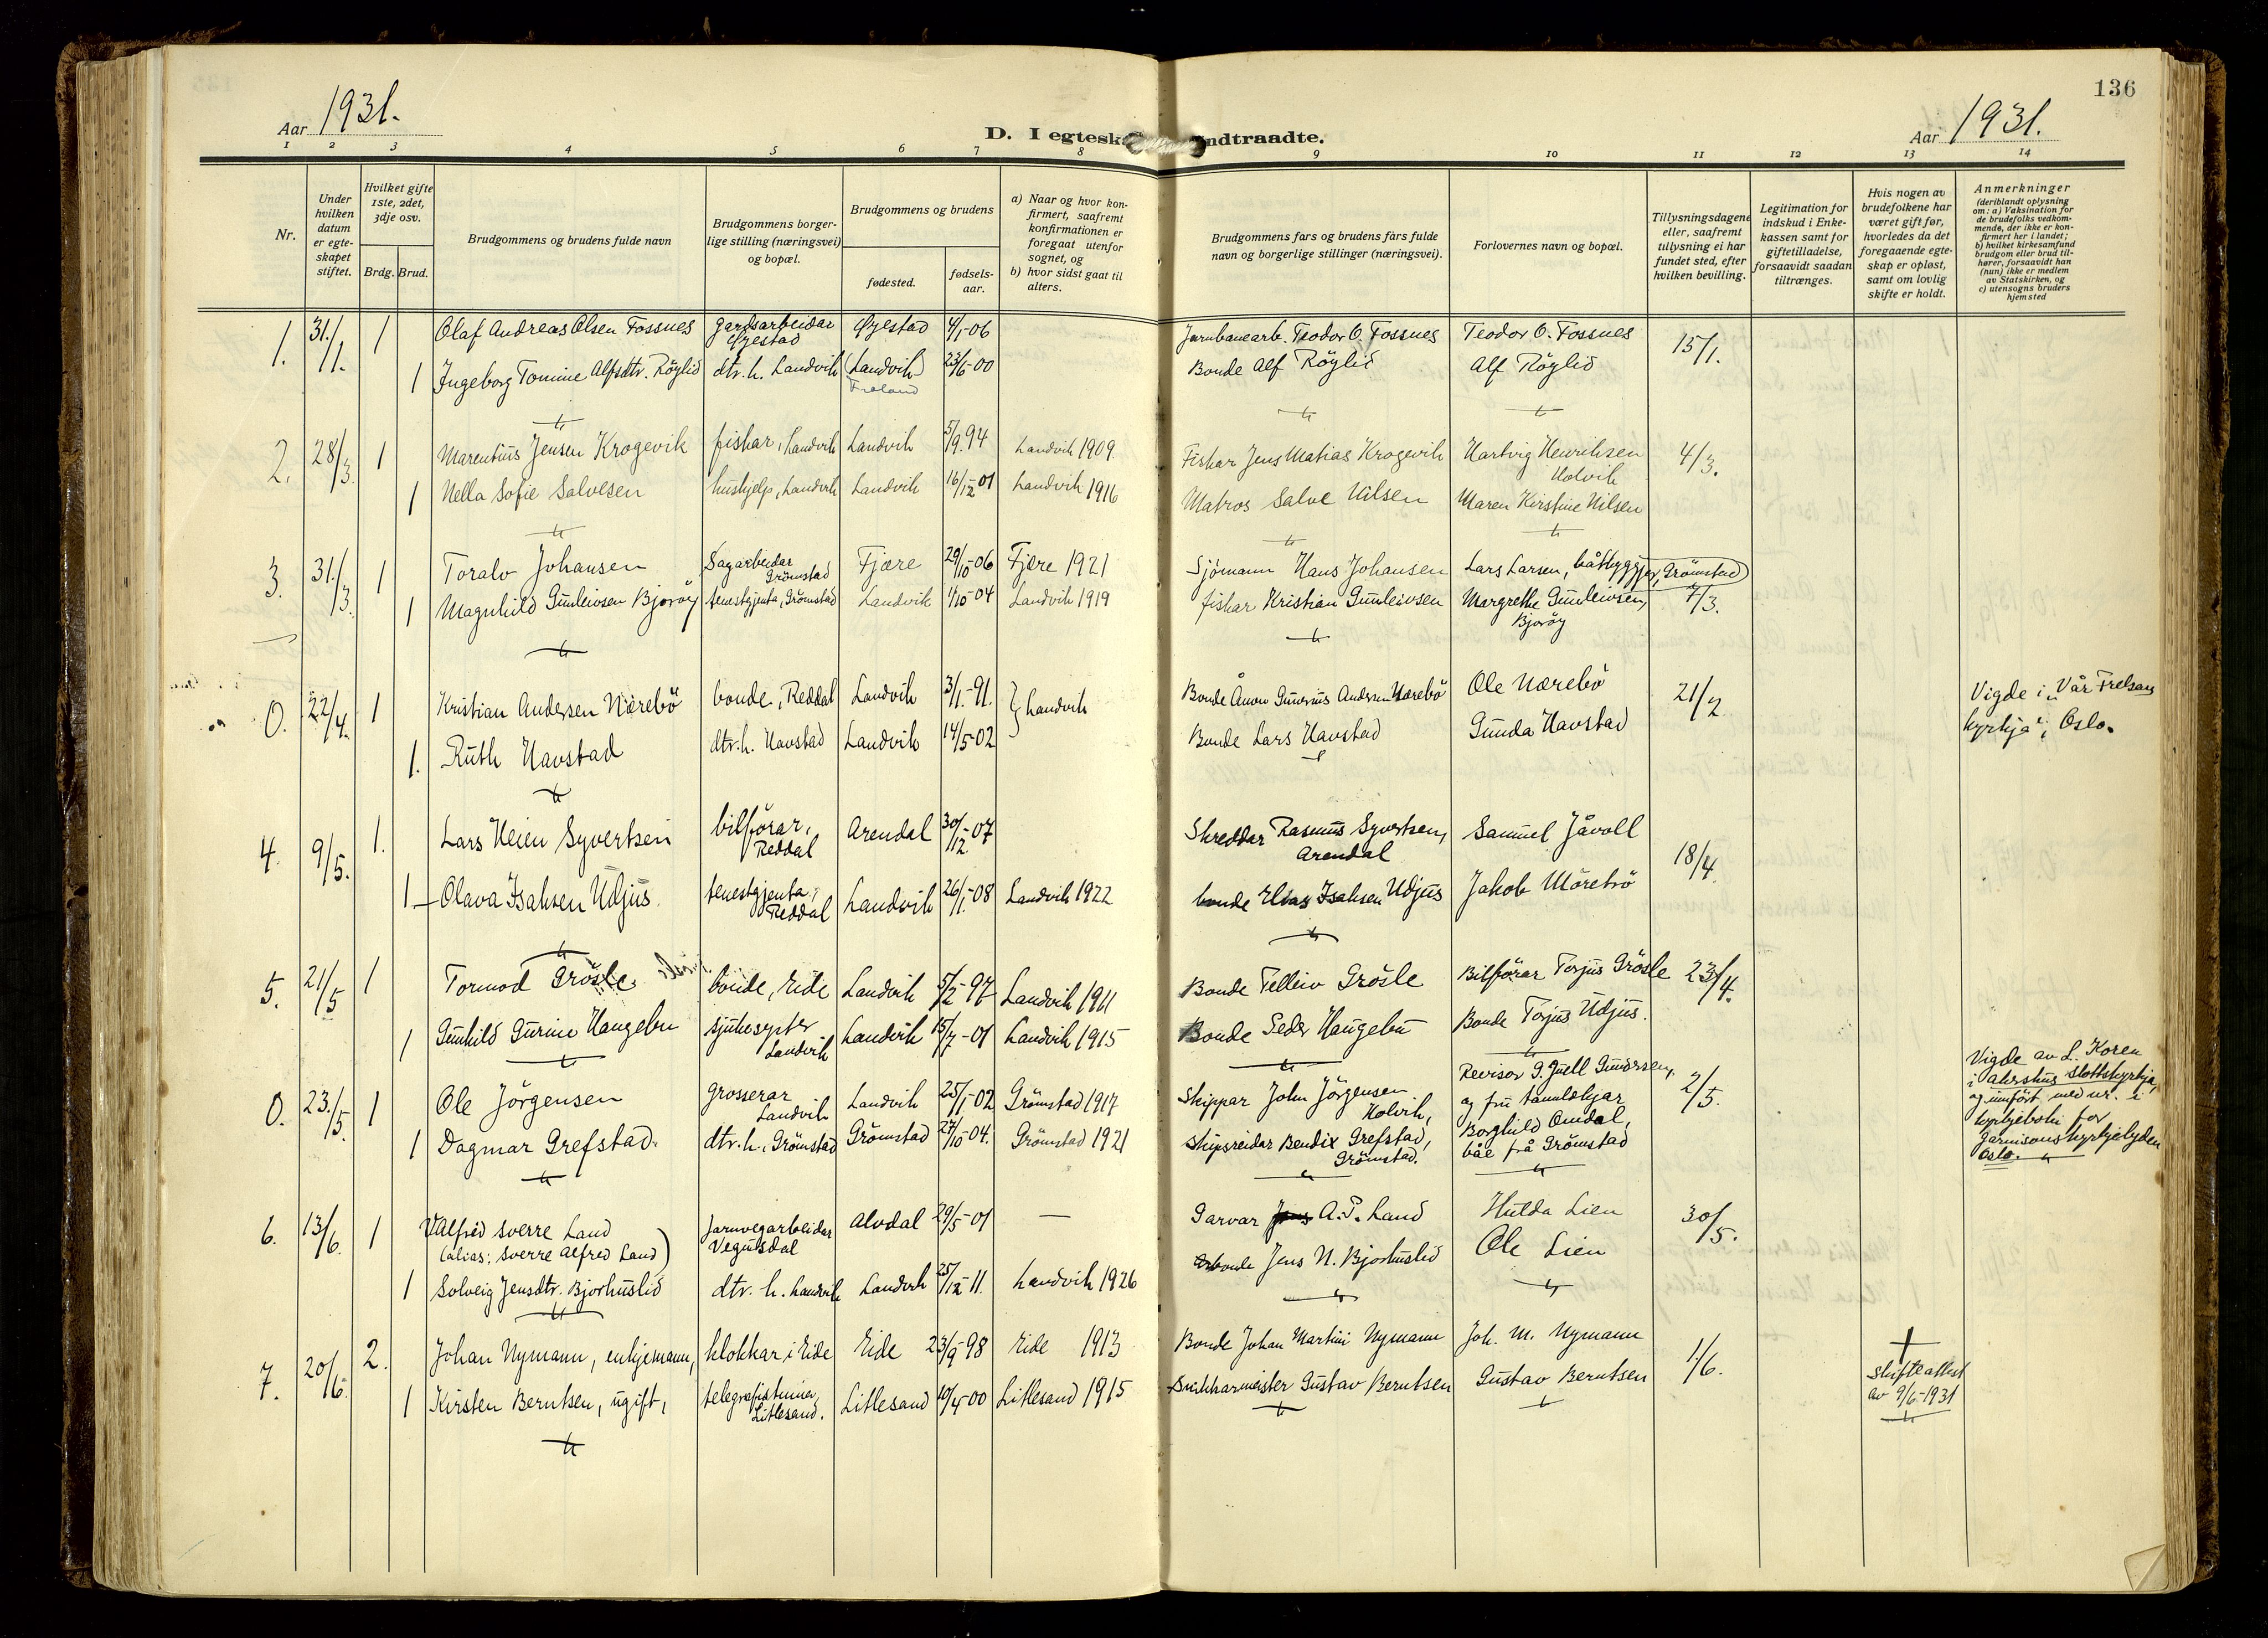 136
Aar 1931.
D. I egtesk ndtraadte.
Aar 1931.
1 2 3 4 5 6 7 8 9 10 11 12 13 14
Nr.
Under hvilken datum er egte-skapet stiftet.
Hvilket gifte 1ste, 2det, 3dje osv.
Brdg. Brud.
Brudgommens og brudens fulde navn
Brudgommens borger-lige stilling (næringsvei) og bopæl.
Brudgommens og brudens
fødested.
fødsels-aar.
a) Naar og hvor kon-firmert, saafremt konfirmationen er foregaat utenfor sognet, og
b) hvor sidst gaat til alters.
Brudgommens fars og brudens fars fulde navn og borgerlige stillinger (næringsvei).
Forlovernes navn og bopæl.
Tillysningsdagene eller, saafremt tillysning ei har fundet sted, efter hvilken bevilling.
Legitimation for indskud i Enke-kassen samt for giftetilladelse, forsaavidt saadan tiltrænges.
Hvis nogen av brudefolkene har været gift før, hvorledes da det foregaaende egte-skap er opløst, samt om lovlig skifte er holdt.
Anmerkninger
(deriblandt oplysning om: a) Vaksination for de brudefolks vedkom-mende, der ikke er kon-firmert her i landet;
b) hvilket kirkesamfund brudgom eller brud til-hører, forsaavidt han (hun) ikke er medlem av Statskirken, og
c) utensogns bruders hjemsted
1. 31/1. 1 Olaf Andreas Olsen Fossnes gardsarbeidar Øyestad Øyestad 4/1-06 Jarnbanearb. Teodor O. Fossnes Teodor O. Fossnes 15/1.
1 Ingeborg Tomine Alfsdtr. Röylid dtr. h. Landvik (Landvik) Froland 23/6-00 Bonde Alf Röylid Alf Röylid
2. 28/3. 1 Marentius Jensen Krogevik fiskar, Landvik Landvik 5/9.94 Landvik 1909. Fiskar Jens Matias Krogevik Hartvig Henriksen Holvik 4/3.
1 Nella Sofie Salvesen hushjelp, Landvik Landvik 16/12-01 Landvik 1916 Matros Salve Nilsen Maren Kirstine Nilsen
3. 31/3. 1 Toralv Johansen Sagarbeidar Grömstad Fjære 29/10-06 Fjære 1921 Sjömann Hans Johansen Lars Larsen, båtbyggjer, Grömstad
1 Magnhild Gunleivsen Bjoröy tenestgjenta, Grömstad Landvik 1/10-04 Landvik 1919 fiskar Kristian Gunleivsen Margrethe Gunleivsen, Bjoröy 7/3.
0. 22/4. 1 Kristian Andersen Nærebö bonde, Reddal Landvik 3/1.-91. } Landvik Bonde Ånon Gunerius Andersen Nærebö Ole Nærebö 21/2. Vigde i "Vår Frelsars kyrkja", Oslo.
1. Ruth Havstad dtr. h. Havstad Landvik 14/5-02 Bonde Lars Havstad Gunda Havstad
4. 9/5. 1. Lars Heien Syvertsen bilförar, Reddal Arendal 30/12-07 Skreddar Rasmus Syvertsen, Arendal Samuel Jåvoll 18/4.
1 Olava Isaksen Udjus. tenestgjenta, Reddal Landvik 26/1.-08 Landvik 1922 bonde Elias Isaksen Udjus Jakob Mörebrö
5. 21/5 1 Tormod Grösle bonde, Eide Landvik 5/2-97 Landvik 1911 Bonde Telleiv Grösle Bilförar Torjus Grösle 23/4.
1 Gunhild Gurine Haugebu sjukesyster Landvik Landvik 15/7-01 Landvik 1915 Bonde Peder Haugebu Bonde Torjus Udjus.
0. 23./5. 1 Ole Jörgensen grosserar Landvik Landvik 25/1-02 Grömstad 1917 Skippar John Jörgensen Holvik, Revisor G. Juell Gundersen, og fru tannlækjar 2/5. Vigde av L. Koren i Akershus slottskyrkja, og innfört med nr. i kyrkjeboki for Garnisonskyrkjelyden Oslo.
1 Dagmar Grefstad. dtr. h., Grömstad Grömstad 27/10-04. Grömstad 1921 Skipsreidar Bendix Grefstad, Grömstad. Borghild Omdal, båe frå Grömstad
6. 13/6. 1 Alfred Sverre Land (alias: Sverre Alfred Land) Jarnvegarbeidar Vegusdal Alvdal 29/5-01 — Garvar A. P. Land Hulda Lien 30/5.
1 Solveig Jensdtr. Bjorhuslid dtr. h. Landvik Landvik 25/12-11. Landvik 1926 bonde Jens N. Bjorhuslid Ole Lien
7. 20/6. 2. Johan Nymann, enkjemann, klokkar i Eide Eide 23/9-98 Eide 1913 Bonde Johan Martin Nymann Joh. M. Nymann 1/6. Skifteattest av 9/6-1931
1 Kirsten Berntsen, ugift, telegrafistinna, Litlesand. Litlesand 10/4-00 Litlesand 1915 Snikkarmeister Gustav Berntsen Gustav Berntsen